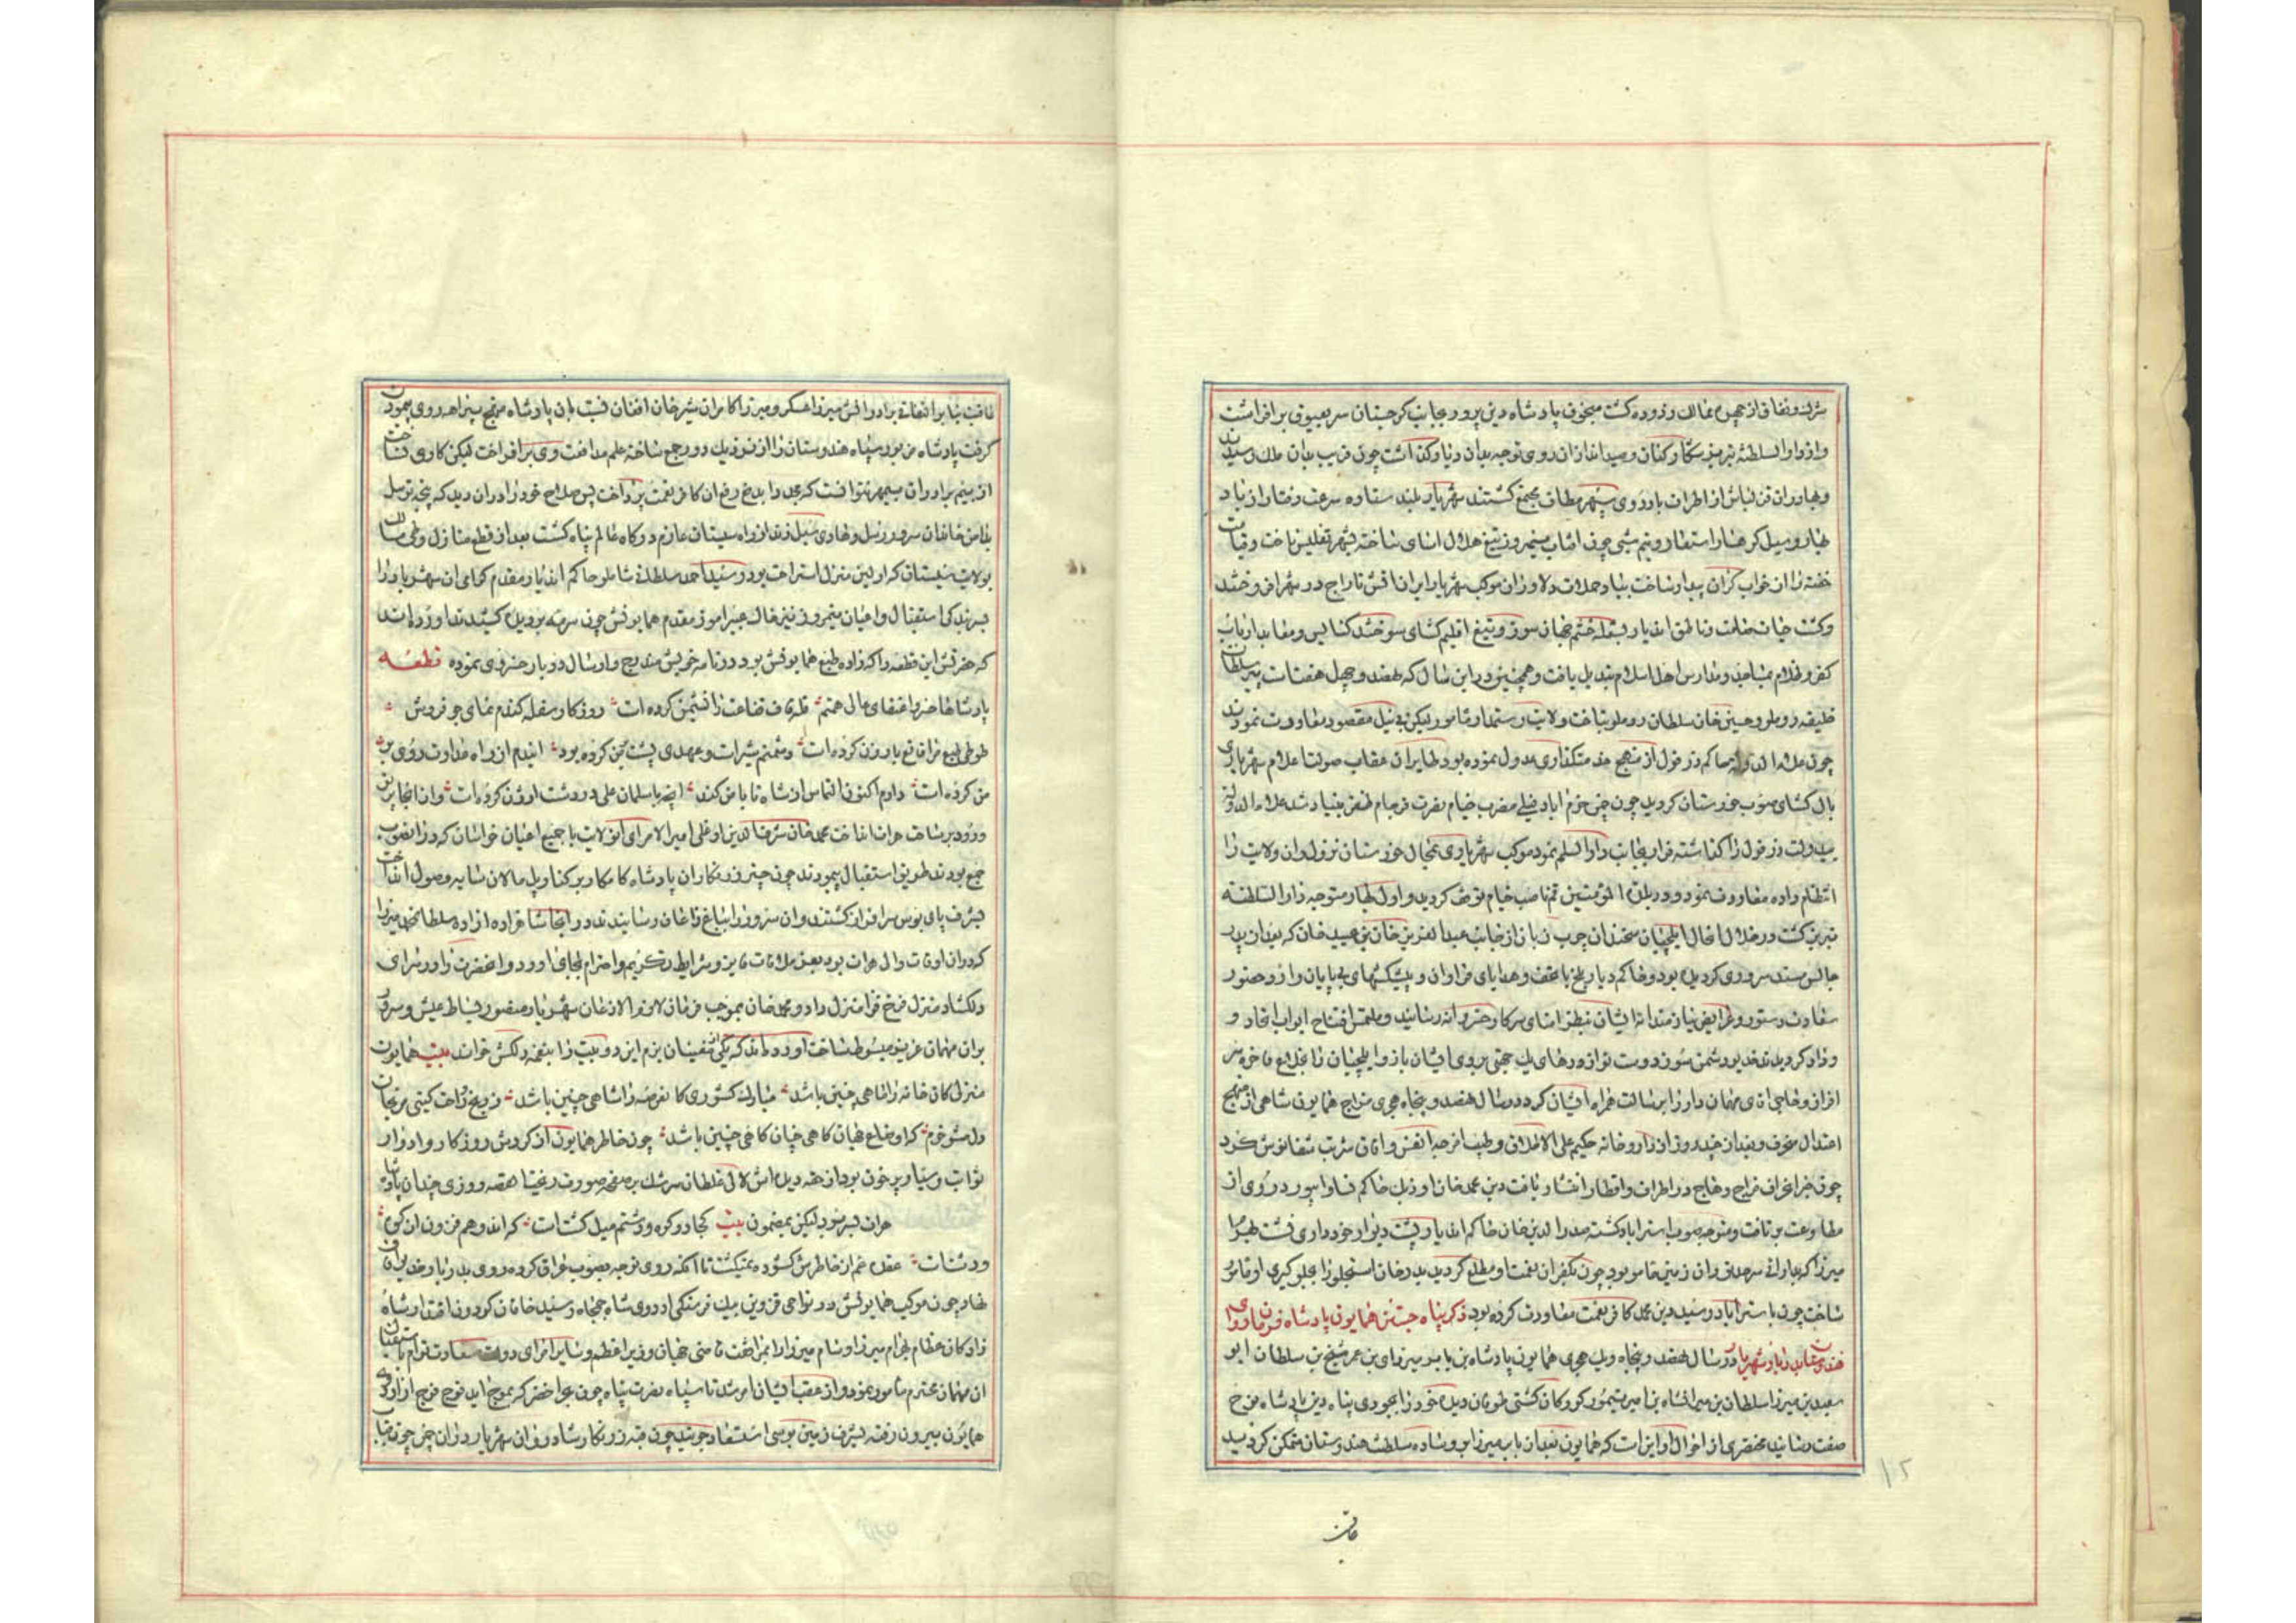 شرک و نفاق از چهره ممالک زدوده گشت میخوف پادشاه دین پرور بجانب گرجستان سر بعیوق برافراشت
واز دار السلطنه تبریز شکار کنان و صید انداز ان روی توجه بدان دیار گذاشت چون قریب بدان ملک رسیدند
و بهادران قزلباش از اطراف باردوی سپهر مطاف مجتمع گشتند شهریار بلند ستاره سرعت رفتار از باد
بهار و سیل کوهسار استعاره و نیم شبی چون افتاب نیمروز تیغ هلال اسای ساخته بشهر تفلیس تاخت و قیامت
خفته را از خواب گران بیدار ساخت بنیاد حملات دلاوران موکب شهریار ایران اتش تاراج در شهر افروختند
وکشت حیات صامت و ناطق اندیار بشعله خشم جهان سوز و تیغ اقلیم گشای سوختند کنایس و معابد ارباب
کفر و ظلام بمساجد و مدارس اهل اسلام تبدیل یافت و همچنین در این سال که نهصد و چهل هفت است پیر سلطان
خلیفه روملو و حسین خان سلطان روملو بتاخت ولایت رستمدار مامور لیکن بی نیل مقصود معاودت نمودند
چون علاء الدوله حاکم دزفول از منهج خدمتگذاری عدول نموده بود طایران عقاب صولت اعلام شهریاری
بال گشای صوب خوزستان گردید چون چمن خرم اباد فیلی مضرب خیام نصرت فرجام ظفر بنیاد شد علاء الدوله
بیدولت دزفول را گذاشته فرار بجانب دار السلم نمود موکب شهریاری بمحال خوزستان نزول و ان ولایت را
انتظام داده معاودت نمود و در بلدة المؤمنین قم ناصب خیام توقف گردید و اول بهار متوجه دار السلطنه
تبریز گشت در خلال انحال ایلچیان سخندان چرب زبان از جانب عبدالعزیز خان بن عبید خان که بعد از پدر
جالس مسند سروری گردیده بود و حاکم دیار بلخ با تحف و هدایای فراوان و پیشکشهای بی پایان وارد حضور
سعادت دستور و عرایض نیازمندانه ایشان بنظر امنای سرکار خسروانه رسانید و ملتمس افتتاح ابواب اتحاد و
وداد گردیدند خدیو دشمن سوز دوست نواز درهای یک جهتی بروی ایشان باز و ایلچیان را بخلاع فاخره سر
افراز و خاجی اقای مهمان دار را برسالت همراه ایشان کرد در سال نهصد و پنجاه هجری مزاج همایون شاهی از منهج
اعتدال منحرف و بعد از چند روز از داروخانه حکیم علی الاطلاق و طبیب امرجه انفس و افاق شربت شفا نوش کرد
چون خبر انحراف مزاج وهاج در اطراف و اقطار انتشار یافت دین محمد خان اوزبک حاکم نسا و ابیورد روی از
مطاوعت برتافت و متوجه صوب استراباد گشته صدرالدین خان حاکم اندیار پشت دیوار خودداری نشست بهرام
میرزا که بیاری سرحد ان زمین مامور بود چون بکفران نعمت او مطلع گردید بدرخان استجلو را بجلوگیری او مامور
ساخت چون باستراباد رسید دین محمد کافر نعمت معاودت کرده بود ذکر پناه جستن همایون پادشاه فرمانروای
هندوستان بدربار شهریار در سال نهصد و پنجاه ویک هجری همایون پادشاه بن بابر میرزای بن عمر شیخ بن سلطان ابو
سعید بن میرزا سلطان بن میرانشاه بن امیر تیمور کورکان کشتی طوفان دیده خود را بجودی پناه دین پادشاه نوح
صفت رسانید مختصری از احوال او این است که همایون بعد از باب میرزا بر وساده سلطنت هندوستان متمکن گردید
عاقبت
۱۲
عاقبت بنابر اتفاق برادرانش میرزا عسکر و میرزا کامران شیرخان افغان نسبت بان پادشاه منهج بیراهه روی پیمودن
گرفت پادشاه مزبور سپاه هندوستان را از دور و نزدیک جمع ساخته علم مدافعت وی برافراخت لیکن کاری نساخت
از بیم برادران بیمهر نتوانست که بجد و ابدع رفع ان کافر نعمت پرداخت پس صلاح خود را در ان دید که پنجه توسل
بدامن خاندان سرور رسل و هادی سبل زند از راه سیستان عازم درگاه عالم پناه گشت بعد از قطع منازل و طی مسالک
بولایت سیستان که اولین منزل استراحت بود رسید احمد سلطان شاملو حاکم اندیار مقدم گرامی ان شهریار را
بسربلندی استقبال و اعیان نیمروز نیز خاک عبیر اموز مقدم همایونش چون سرمه بر دیده کشیدند اورده اند
که حضرتش این قطعه را که زاده طبع همایونش بود در نامه خویش مندرج و ارسال دربار خسروی نموده قطعه
پادشاها خسروا عنقای عالی همتم قله قاف قناعت را نشیمن کرده است روزگار سفله گندم نمای جو فروش
طوطی طبع مرا قانع بارزن کرده است دشمنم شیر است و عمری پشت بمن کرده بود ایندم از راه عداوت روی بر
من کرده است دارم اکنون التماس از شاه تا با من کند انچه با سلمان علی در دشت ارژن کرده است و از انجا برق
ورود بر ساحت هرات انداخت محمد خان شرف الدین اوغلی امیر الامرای انولایت با جمیع اعیان خراسان که در انصوب
جمع بودند طریق استقبال پیمودند چون چتر زرنگار ان پادشاه کامکار بر کنار پل مالان سایه وصول انداخت
بشرف پای بوس سرافراز گشتند و ان سرور را بباغ زاغان رسانیدند در انجا شاهزاده ازاده سلطان محمد میرزا
که در ان اوقات والی هرات بود بعز ملاقات فایز و شرایط تکریم و احترام بجای اورد و انحضرت را در سرای
دلگشاد منزل فرح فزا منزل داد و محمد خان بموجب فرمان لازم الاذعان شهریار منصور بساط عیش و سرور
بران مهمان عزیز مبسوط ساخت اورده اند که یکی از مغنیان بزم این دو بیت را بنغمه دلکش خواند بیت همایون
منزلی کان خانه را ماهی چنین باشد مبارک کشوری کان عرصه را شاهی چنین باشد ز رنج و راحت گیتی مرنجان
دل مشو خرم که اوضاع جهان گاهی چنان گاهی چنین باشد چون خاطر همایون از گردش روزگار و ادوار
ثوابت و سیار پر خون بود از حقه دیده اش لالی غلطان سرشک بر صفحه صورت رغیتا هقه و روزی چندان پادشاه
هرات بسر نبود لیکن بمضمون بیت کجا در کوه و دشتم میل گشت است که اندوهم فزون از کوه
و دشت است عقده غم از خاطرش گشوده نمیگشت تا انکه روی توجه بصوب عراق کرده روی بدربار خدیو افاق
نهاد چون موکب همایونش در نواحی قزوین بیک فرسنگی اردوی شاه جمجاه رسید خاقان گردون اقتدار شاه
زادگان عظام بهرام میرزا و سام میرزا را بمرافقت قاضی جهان وزیر اعظم و سایر امرای دولت سعادت توام باستقبال
ان مهمان محترم مامور نمود و از عقب ایشان امر شد تا سپاه نصرت پناه چون بحر اخضر که بموج اید فوج فوج از اردوی
همایون بیرون رفته بشرف زمین بوسی استسعاد جویند چون قبه زرنگار شادروان شهریار دران چمن چون قباب